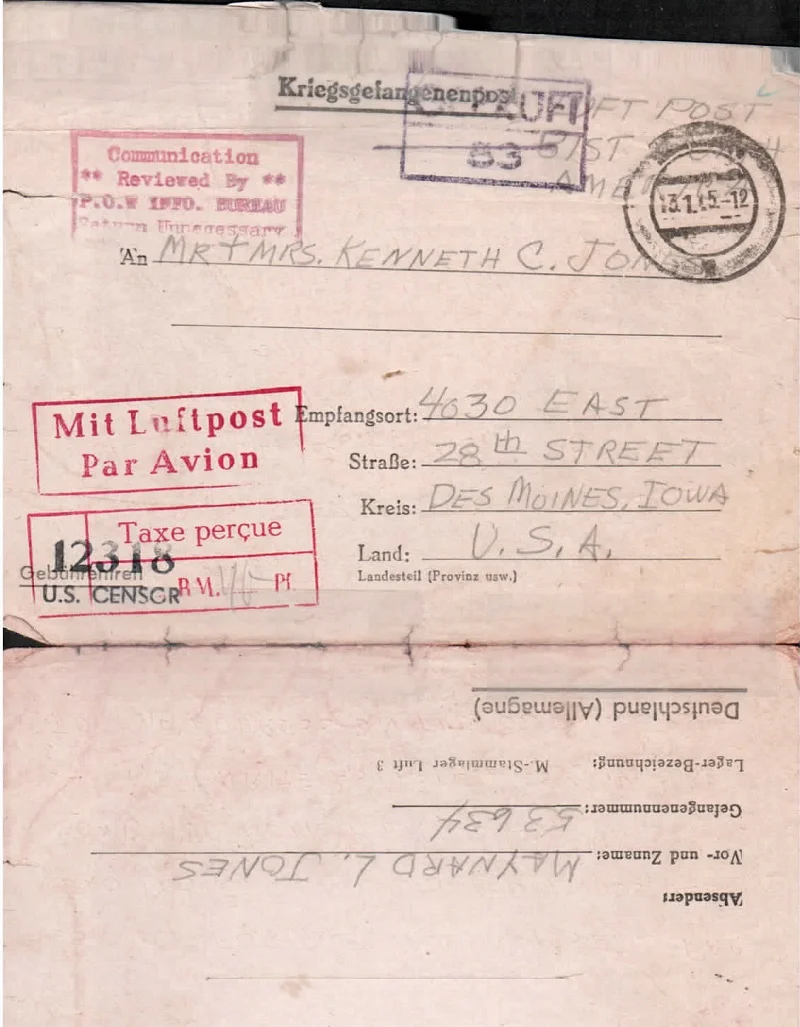 Kriegsgefangenenpost
LUFT
83
POST
Communication
** Reviewed By **
P.O.W INFO. BUREAU
Return Unnecessary
13.1.45-12
An MR + MRS. KENNETH C. JONES
Mit Luftpost
Par Avion
Empfangsort: 4030 EAST
Straße: 28th STREET
Kreis: DES MOINES, IOWA
Land: U.S.A.
Landesteil (Provinz usw.)
Taxe perçue
12318
Gebührenfrei!
RM. Pf.
U.S. CENSOR
Deutschland (Allemagne)
Lager-Bezeichnung: M.-Stammlager Luft 3
Gefangenennummer: 53634
Vor- und Zuname: MAYNARD L. JONES
Absender: